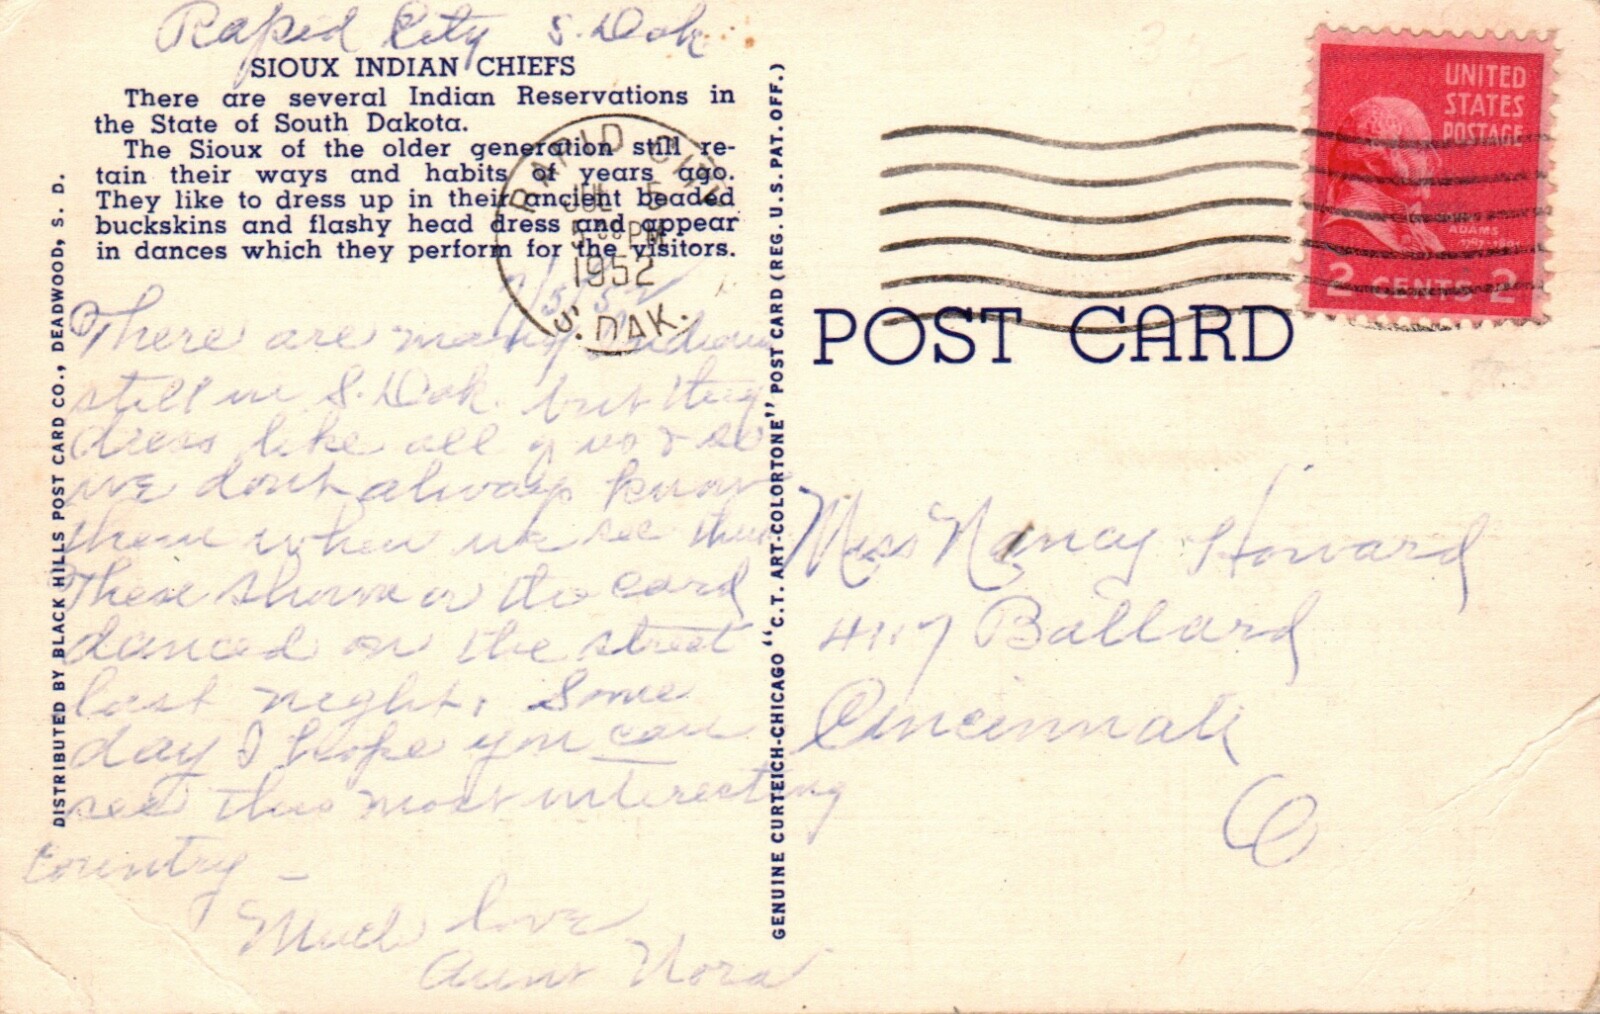 Rapid City S. Dak.
SIOUX INDIAN CHIEFS
There are several Indian Reservations in
the State of South Dakota.
The Sioux of the older generation still re-
tain their ways and habits of years ago.
They like to dress up in their ancient beaded
buckskins and flashy head dress and appear
in dances which they perform for the visitors.
RAPID CITY
JUL 5
5 PM
1952
S. DAK.
7/5/52
There are many Indians
still in S. Dak. but they
dress like all of us & so
we dont always know
them when we see them
These shown on the card
danced on the street
last night. Some
day I hope you can
see this most interesting
Country -
Much love
Aunt Nora
DISTRIBUTED BY BLACK HILLS POST CARD CO., DEADWOOD, S. D.
GENUINE CURTEICH-CHICAGO "C.T. ART-COLORTONE" POST CARD (REG. U.S. PAT. OFF.)
UNITED
STATES
POSTAGE
ADAMS
1797-1801
2 CENTS 2
POST CARD
Miss Nancy Howard
4117 Ballard
Cincinnati
O